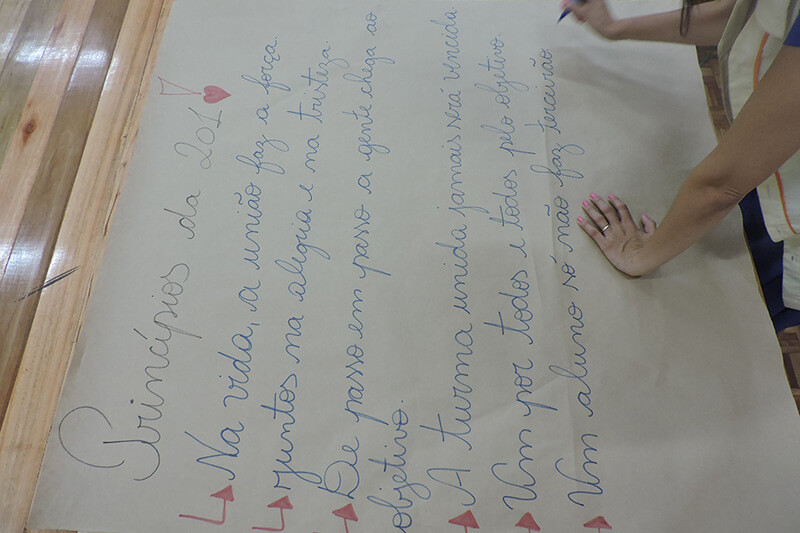 Princípios da 201
Na vida, a união faz a força.
juntos na alegria e na tristeza.
De passo em passo a gente chega ao
objetivo.
A turma unida jamais será vencida
Um por todos e todos pelo objetivo.
Um aluno só não faz terceirão